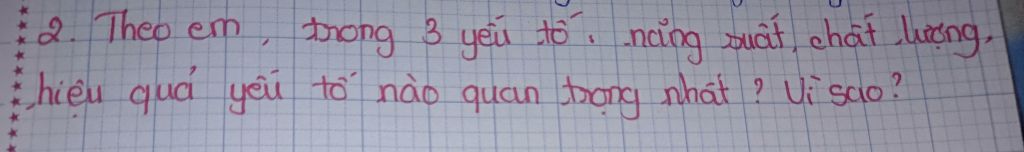 2. Theo em, trong 3 yếu tố: năng suất, chất lượng,
hiệu quả yếu tố nào quan trọng nhất? Vì sao?